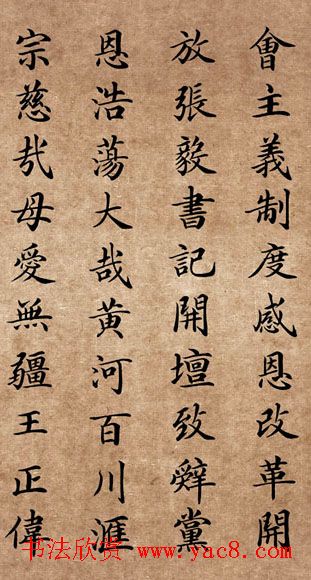 會主義制度感恩改革開
放張毅書記開壇致辭黨
恩浩蕩大哉黃河百川滙
宗慈哉母愛無疆王正偉
书法欣赏 www.yac8.com